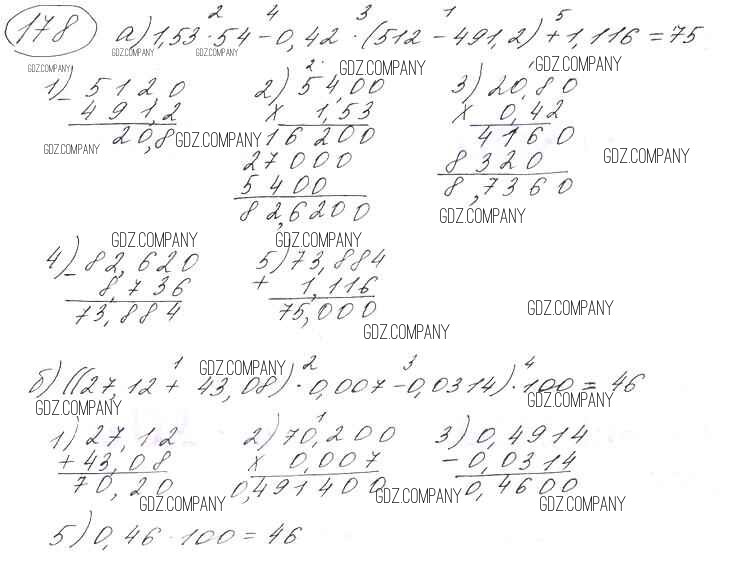 178 а) 1,53 · 54 - 0,42 · (512 - 491,2) + 1,116 = 75
2 4 3 1 5
GDZ.COMPANY GDZ.COMPANY GDZ.COMPANY
GDZ.COMPANY GDZ.COMPANY GDZ.COMPANY
1) - 5120 2) 54,00 3) 20,80
491,2 x 1,53 x 0,42
20,8 GDZ.COMPANY 16200 4160
GDZ.COMPANY 27000 8320 GDZ.COMPANY
5400 8,7360
82,6200 GDZ.COMPANY
GDZ.COMPANY GDZ.COMPANY
4) - 82,620 5) 73,884
8,736 + 1,116
73,884 75,000 GDZ.COMPANY
GDZ.COMPANY
1 GDZ.COMPANY 2 3 4
б) ((27,12 + 43,08) · 0,007 - 0,0314) · 100 = 46
GDZ.COMPANY GDZ.COMPANY
1) 27,12 2) 70,200 3) 0,4914
+ 43,08 x 0,007 - 0,0314
70,20 0,491400 0,4600
GDZ.COMPANY GDZ.COMPANY GDZ.COMPANY GDZ.COMPANY
5) 0,46 · 100 = 46